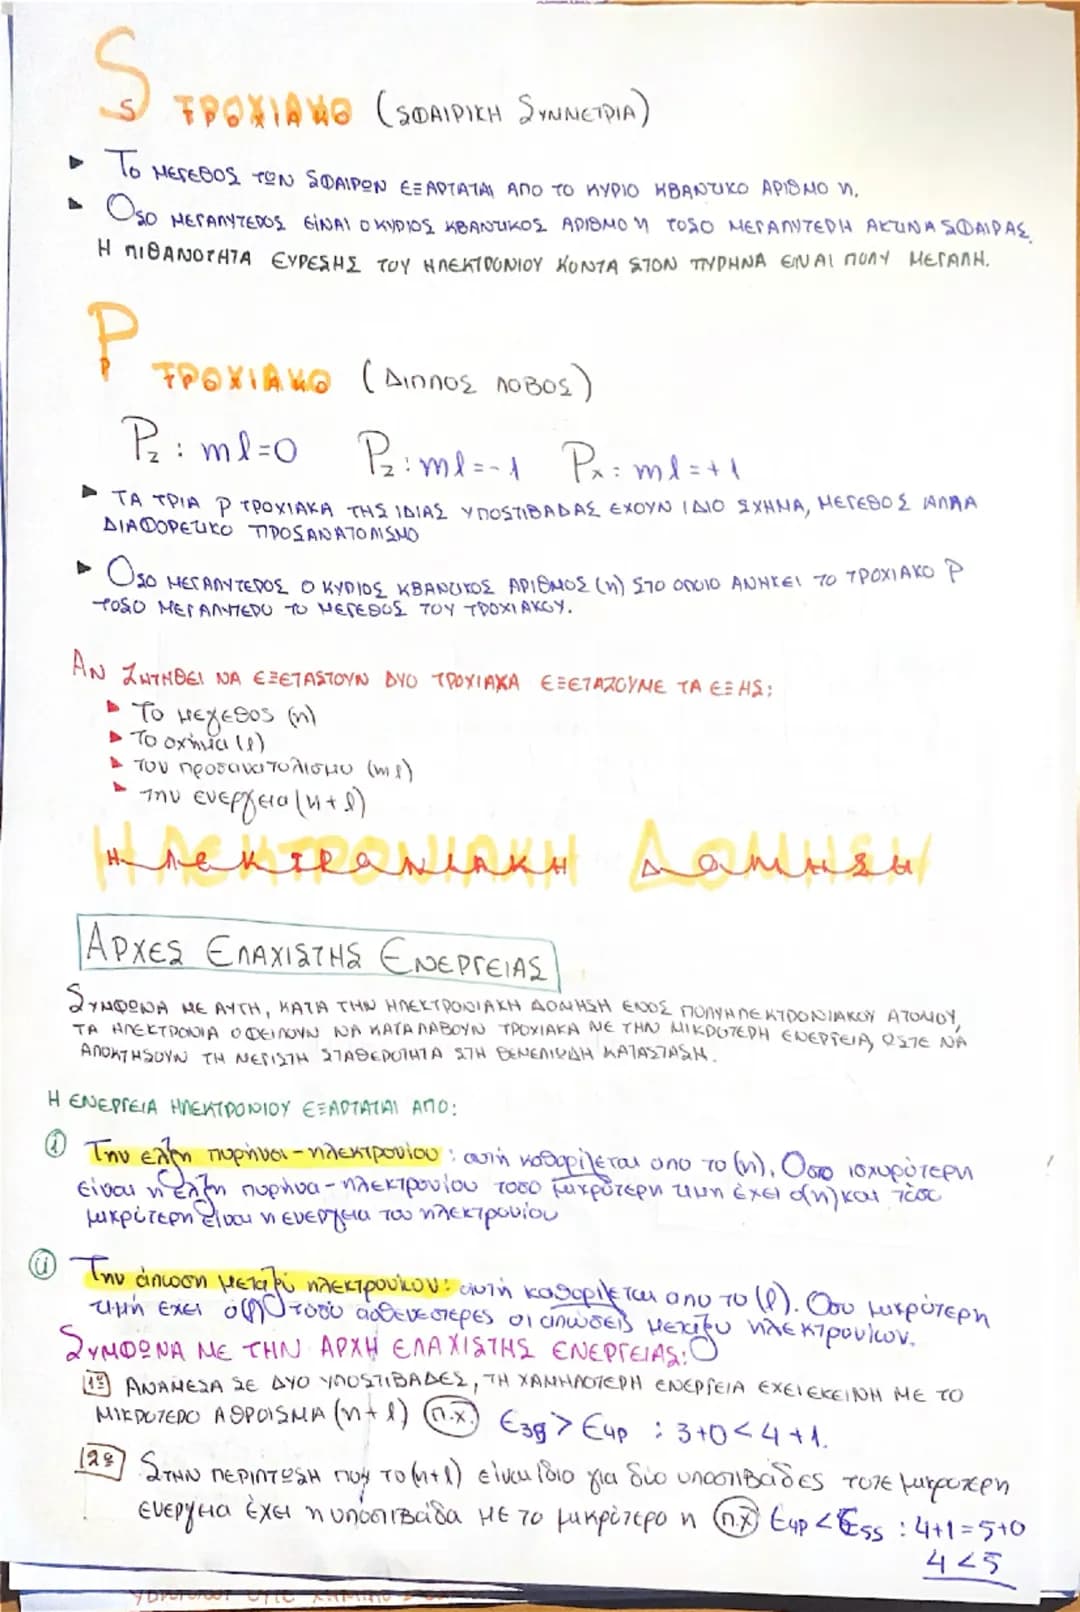 S
s ΤΡΟΧΙΑΚΟ (ΣΦΑΙΡΙΚΗ ΣΥΜΜΕΤΡΙΑ)
ΤΟ ΜΕΓΕΘΟΣ ΤΩΝ ΣΦΑΙΡΩΝ ΕΞΑΡΤΑΤΑΙ ΑΠΟ ΤΟ ΚΥΡΙΟ ΚΒΑΝΤΙΚΟ ΑΡΙΘΜΟ n.
ΟΣΟ ΜΕΓΑΛΥΤΕΡΟΣ ΕΙΝΑΙ Ο ΚΥΡΙΟΣ ΚΒΑΝΤΙΚΟΣ ΑΡΙΘΜΟ n ΤΟΣΟ ΜΕΓΑΛΥΤΕΡΗ ΑΚΤΙΝΑ ΣΦΑΙΡΑΣ.
Η ΠΙΘΑΝΟΤΗΤΑ ΕΥΡΕΣΗΣ ΤΟΥ ΗΛΕΚΤΡΟΝΙΟΥ ΚΟΝΤΑ ΣΤΟΝ ΠΥΡΗΝΑ ΕΙΝΑΙ ΠΟΛΥ ΜΕΓΑΛΗ.
P
P ΤΡΟΧΙΑΚΟ (ΔΙΠΛΟΣ ΛΟΒΟΣ)
Pz : ml=0 Pz : ml=-1 Px : ml=+1
ΤΑ ΤΡΙΑ P ΤΡΟΧΙΑΚΑ ΤΗΣ ΙΔΙΑΣ ΥΠΟΣΤΙΒΑΔΑΣ ΕΧΟΥΝ ΙΔΙΟ ΣΧΗΜΑ, ΜΕΓΕΘΟΣ ΑΛΛΑ
ΔΙΑΦΟΡΕΤΙΚΟ ΠΡΟΣΑΝΑΤΟΛΙΣΜΟ
ΟΣΟ ΜΕΓΑΛΥΤΕΡΟΣ Ο ΚΥΡΙΟΣ ΚΒΑΝΤΙΚΟΣ ΑΡΙΘΜΟΣ (n) ΣΤΟ ΟΠΟΙΟ ΑΝΗΚΕΙ ΤΟ ΤΡΟΧΙΑΚΟ P
ΤΟΣΟ ΜΕΓΑΛΥΤΕΡΟ ΤΟ ΜΕΓΕΘΟΣ ΤΟΥ ΤΡΟΧΙΑΚΟΥ.
ΑΝ ΖΗΤΗΘΕΙ ΝΑ ΕΞΕΤΑΣΤΟΥΝ ΔΥΟ ΤΡΟΧΙΑΚΑ ΕΞΕΤΑΖΟΥΜΕ ΤΑ ΕΞΗΣ:
Το μεγεθος (n)
Το σχήμα (l)
Τον προσανατολισμο (ml)
Την ενεργεια (n+l)
ΗΛΕΚΤΡΟΝΙΑΚΗ ΔΟΜΗΣΗ
ΑΡΧΕΣ ΕΛΑΧΙΣΤΗΣ ΕΝΕΡΓΕΙΑΣ
ΣΥΜΦΩΝΑ ΜΕ ΑΥΤΗ, ΚΑΤΑ ΤΗΝ ΗΛΕΚΤΡΟΝΙΑΚΗ ΔΟΜΗΣΗ ΕΝΟΣ ΠΟΛΥΗΛΕΚΤΡΟΝΙΑΚΟΥ ΑΤΟΜΟΥ,
ΤΑ ΗΛΕΚΤΡΟΝΙΑ ΟΦΕΙΛΟΥΝ ΝΑ ΚΑΤΑΛΑΒΟΥΝ ΤΡΟΧΙΑΚΑ ΜΕ ΤΗΝ ΜΙΚΡΟΤΕΡΗ ΕΝΕΡΓΕΙΑ, ΩΣΤΕ ΝΑ
ΑΠΟΚΤΗΣΟΥΝ ΤΗ ΜΕΓΙΣΤΗ ΣΤΑΘΕΡΟΤΗΤΑ ΣΤΗ ΘΕΜΕΛΙΩΔΗ ΚΑΤΑΣΤΑΣΗ.
Η ΕΝΕΡΓΕΙΑ ΗΛΕΚΤΡΟΝΙΟΥ ΕΞΑΡΤΑΤΑΙ ΑΠΟ:
i Την ελξη πυρήνα-ηλεκτρονίου : αυτή καθορίζεται απο το (n). Οσο ισχυρότερη
είναι η έλξη πυρήνα-ηλεκτρονίου τοσο μικρότερη τιμη έχει ο(n) και τόσο
μικρότερη είναι η ενεργεια του ηλεκτρονίου
ii Την άπωση μεταξύ ηλεκτρονίων: αυτή καθορίζεται απο το (l). Οσο μικρότερη
τιμή έχει ο(l) τόσο ασθενεστερες οι απώσεις μεταξυ ηλεκτρονίων.
ΣΥΜΦΩΝΑ ΜΕ ΤΗΝ ΑΡΧΗ ΕΛΑΧΙΣΤΗΣ ΕΝΕΡΓΕΙΑΣ:
1º ΑΝΑΜΕΣΑ ΣΕ ΔΥΟ ΥΠΟΣΤΙΒΑΔΕΣ, ΤΗ ΧΑΜΗΛΟΤΕΡΗ ΕΝΕΡΓΕΙΑ ΕΧΕΙ ΕΚΕΙΝΗ ΜΕ ΤΟ
ΜΙΚΡΟΤΕΡΟ ΑΘΡΟΙΣΜΑ (n+l) π.χ. E3s > E4p : 3+0<4+1.
2º ΣΤΗΝ ΠΕΡΙΠΤΩΣΗ ΠΟΥ ΤΟ (n+l) είναι ίδιο για δύο υποστιβάδες τοτε μικροτερη
ενεργεια έχει η υποστιβάδα ΜΕ ΤΟ μικρότερο n π.χ E4p < E5s : 4+1=5+0
4<5